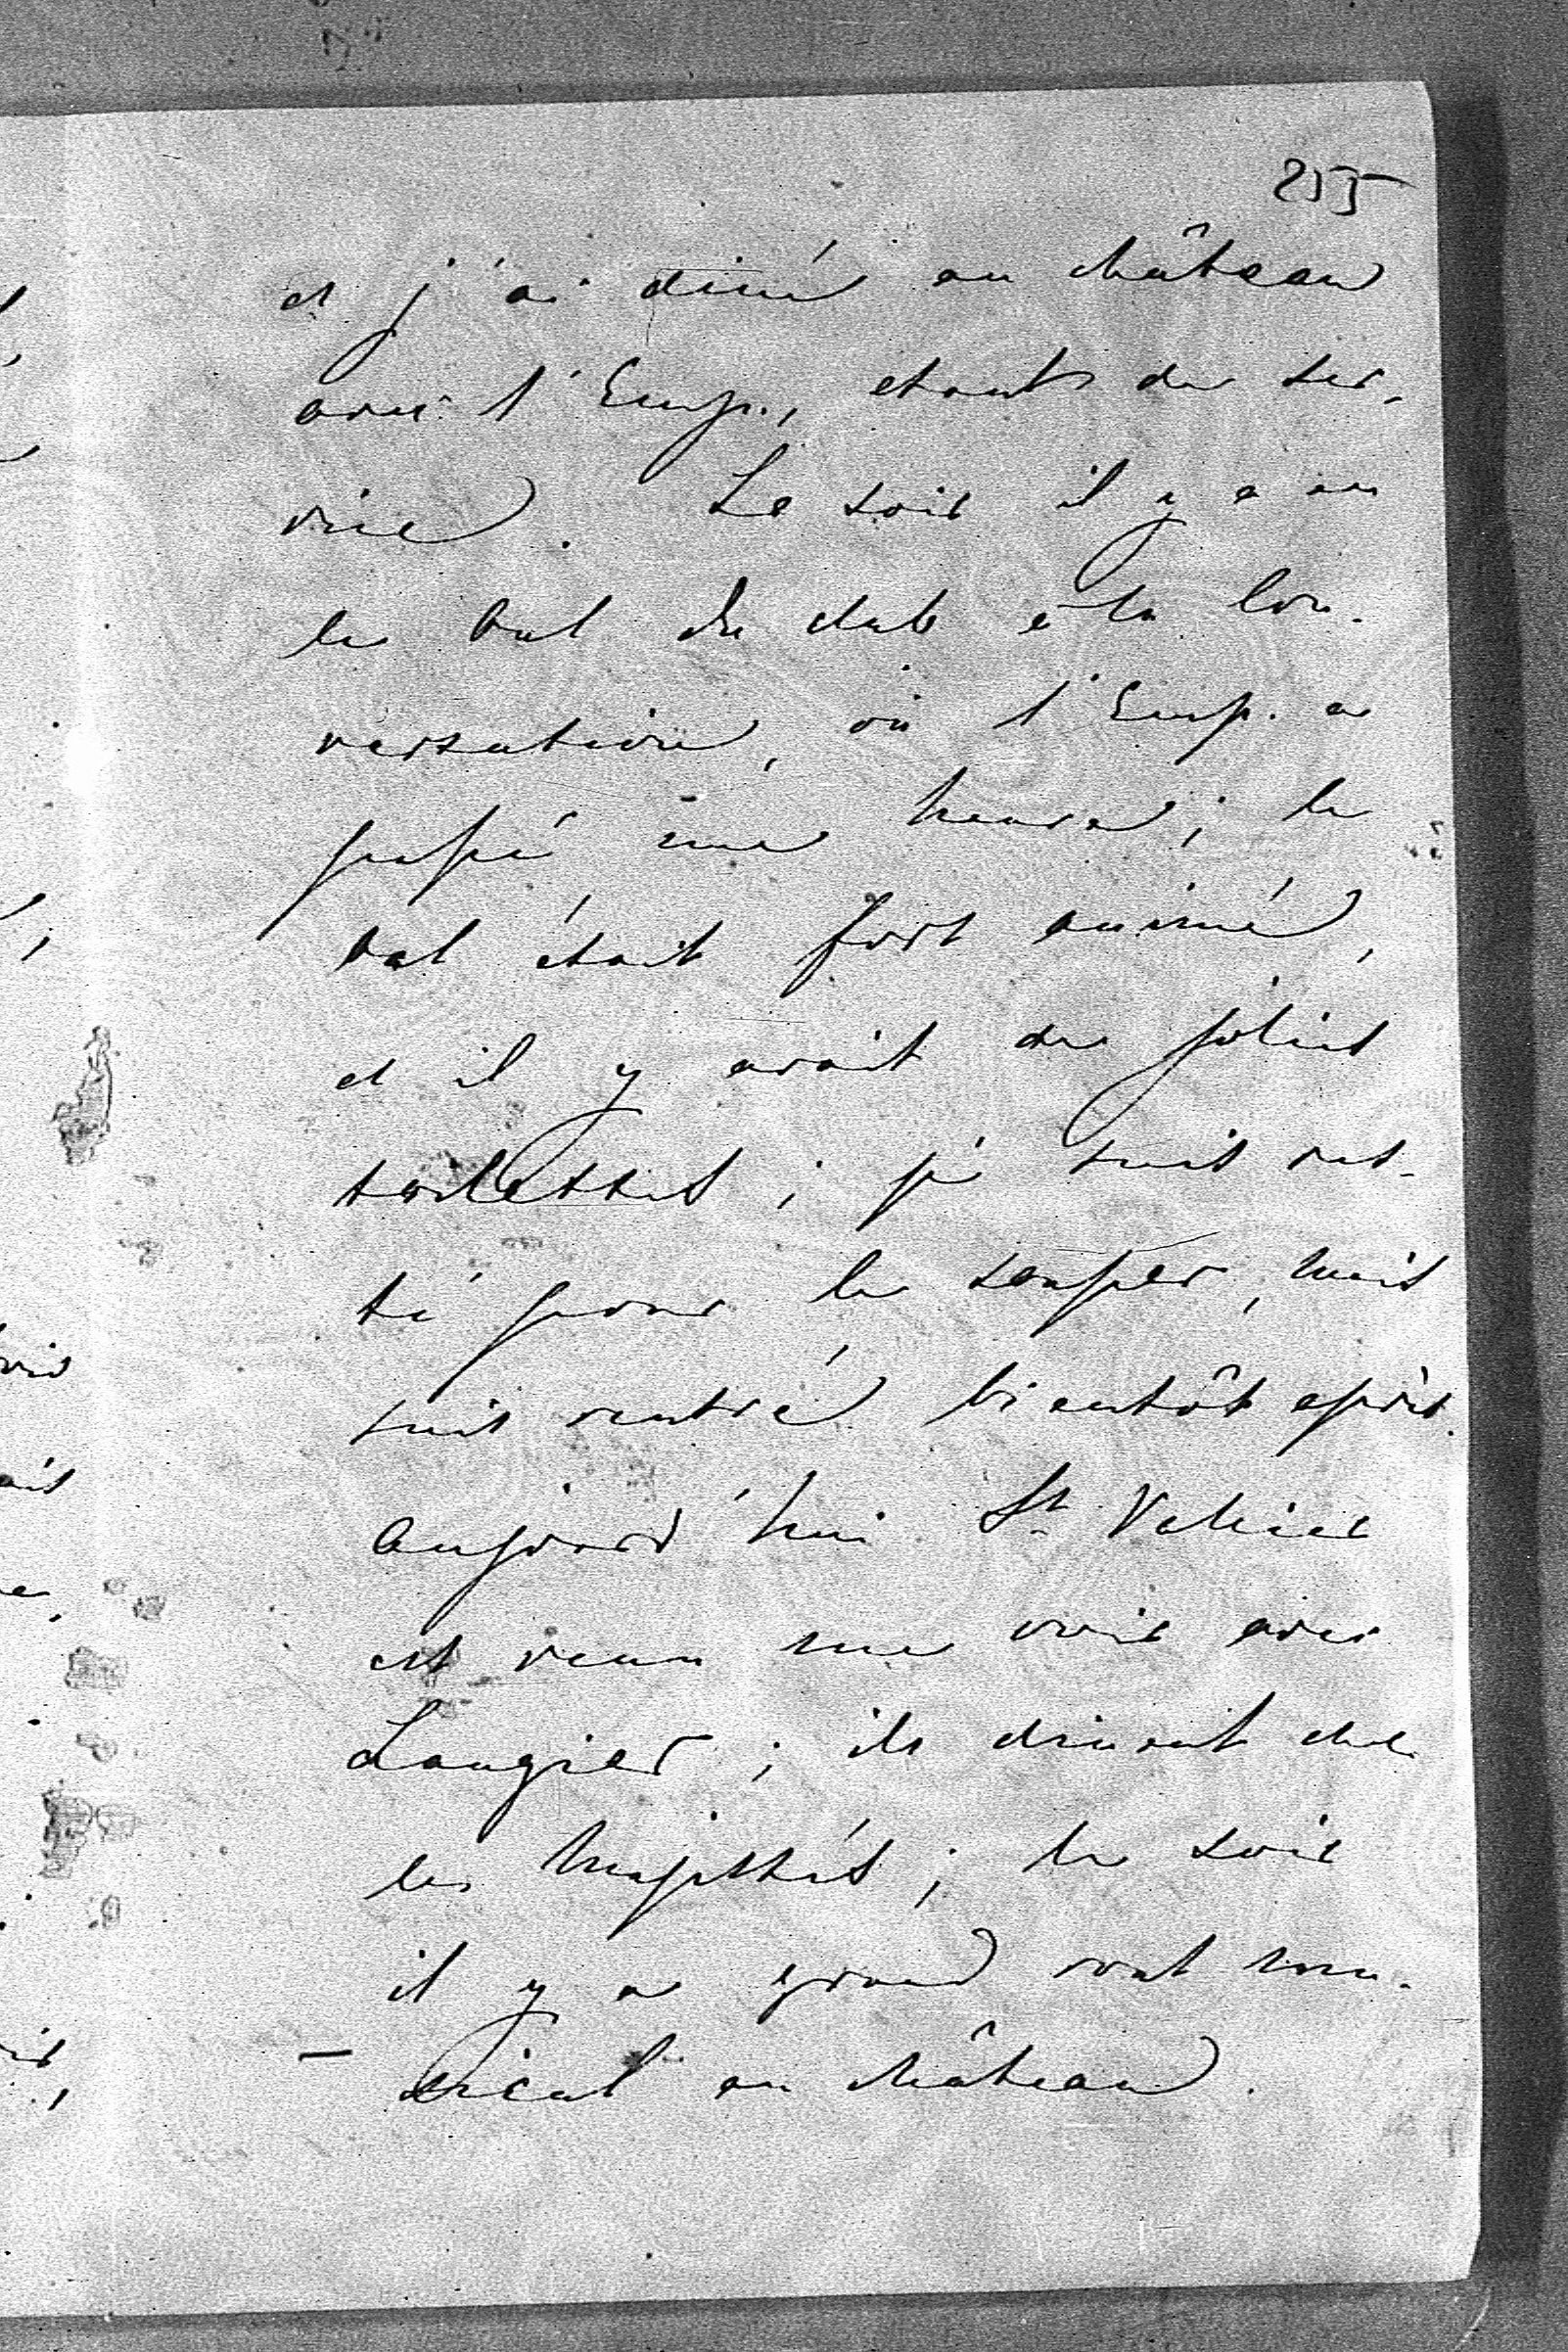 255
et j'ai diné au château
avec l'Emp., etant de ser-
vice. Le soir il y a eu
le bal du club à la Con-
versation, où l'Emp. a
passé une heure; le
bal était fort animé,
et il y avait de jolies
toilettes; je suis res-
té pour le souper, mais
suis rentré bientôt après.
Aujourd'hui St Vallier
est venu me voir avec
Laugier; ils dinent chez
les Majestés; le soir
il y a grand rout mu-
sical au château.